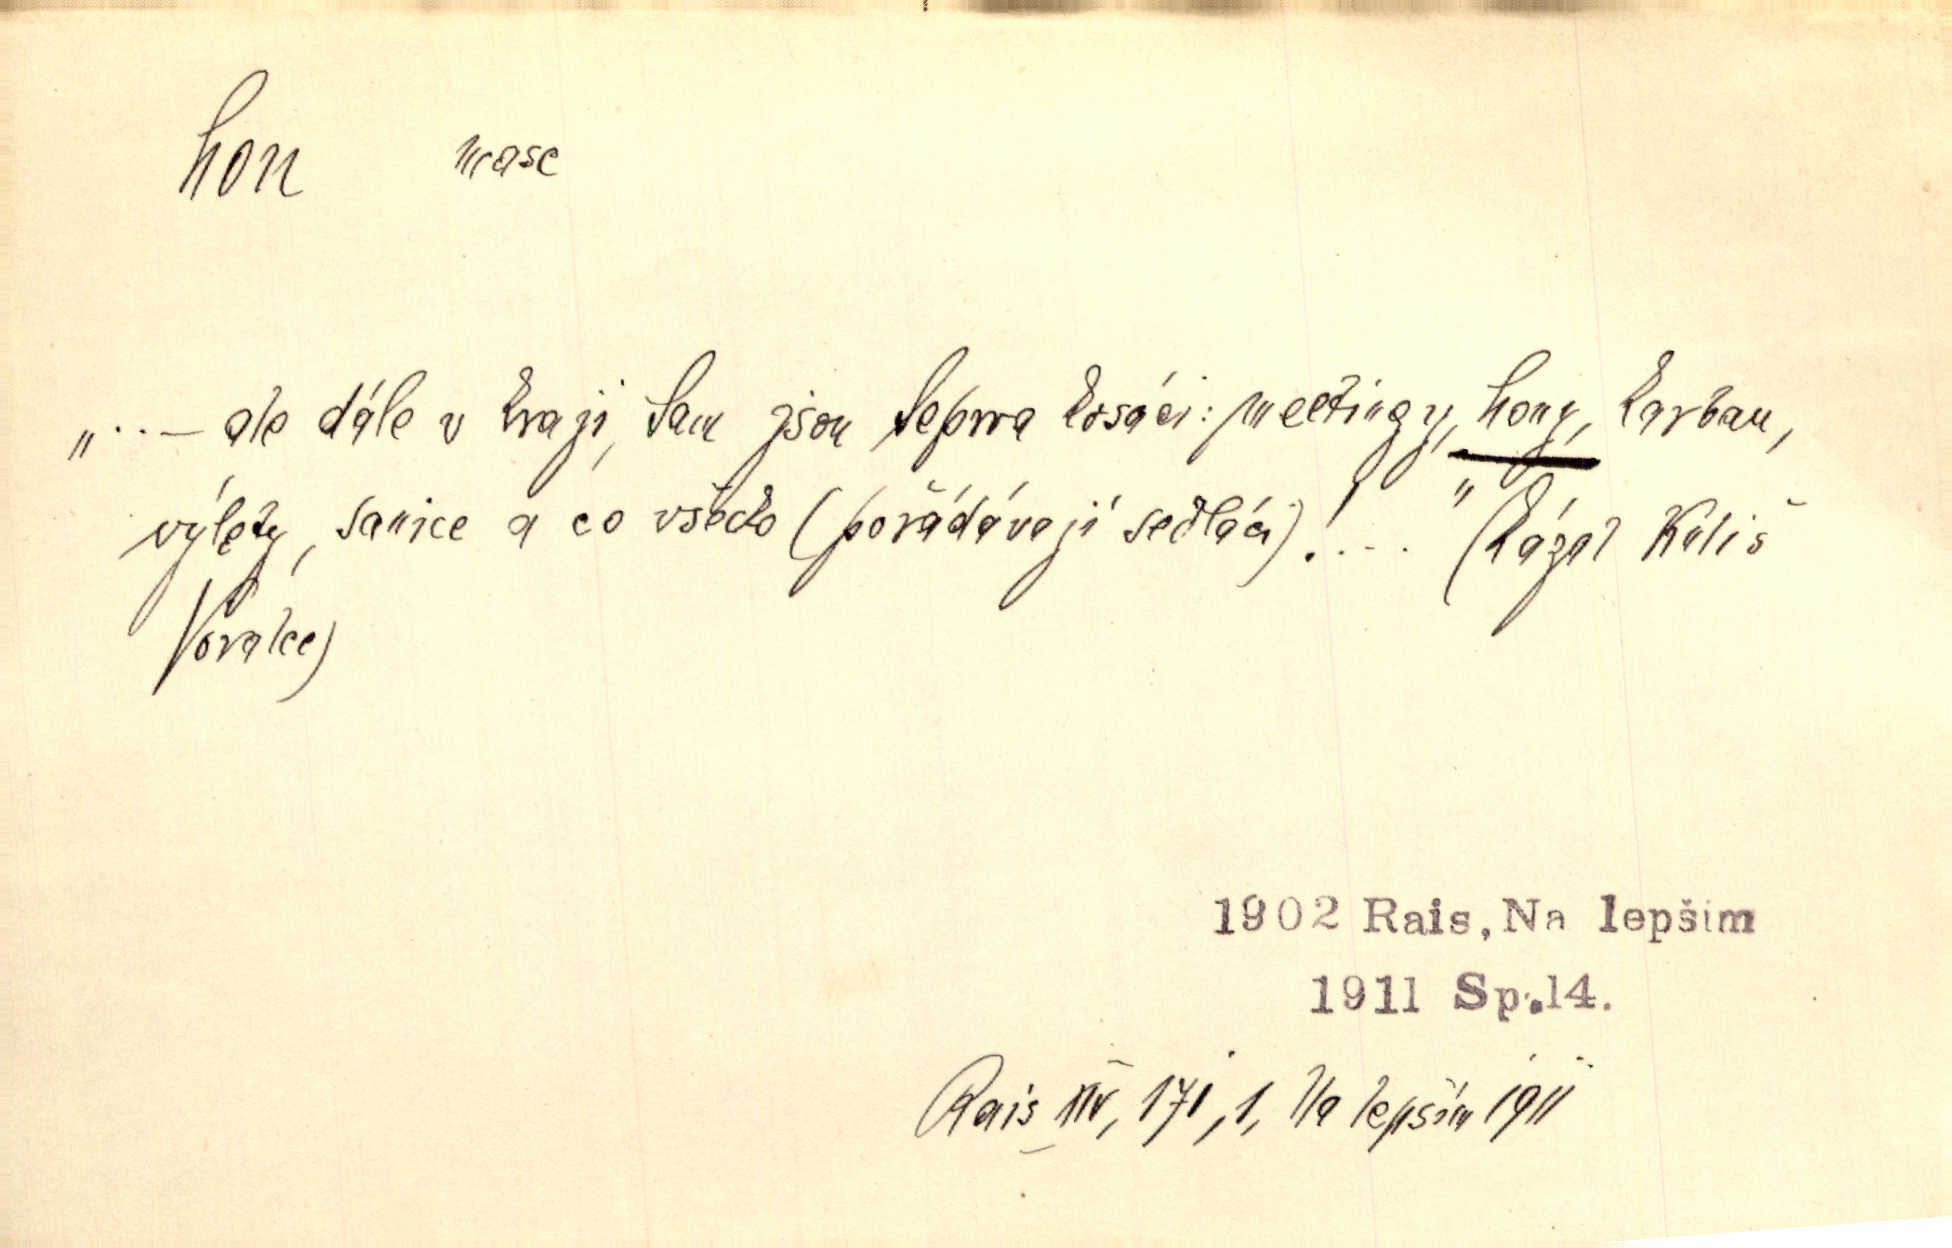 hon masc
„...– ale dále v kraji, tam jsou teprva kosáci: meetingy, hony, karban,
výlety, sanice a co všecko (pořádávají sedláci)!... " (kázal Kališ
Voralce)
1902 Rais, Na lepším
1911 Sp.14.
Rais XIV, 171, 1, Na lepším 1911